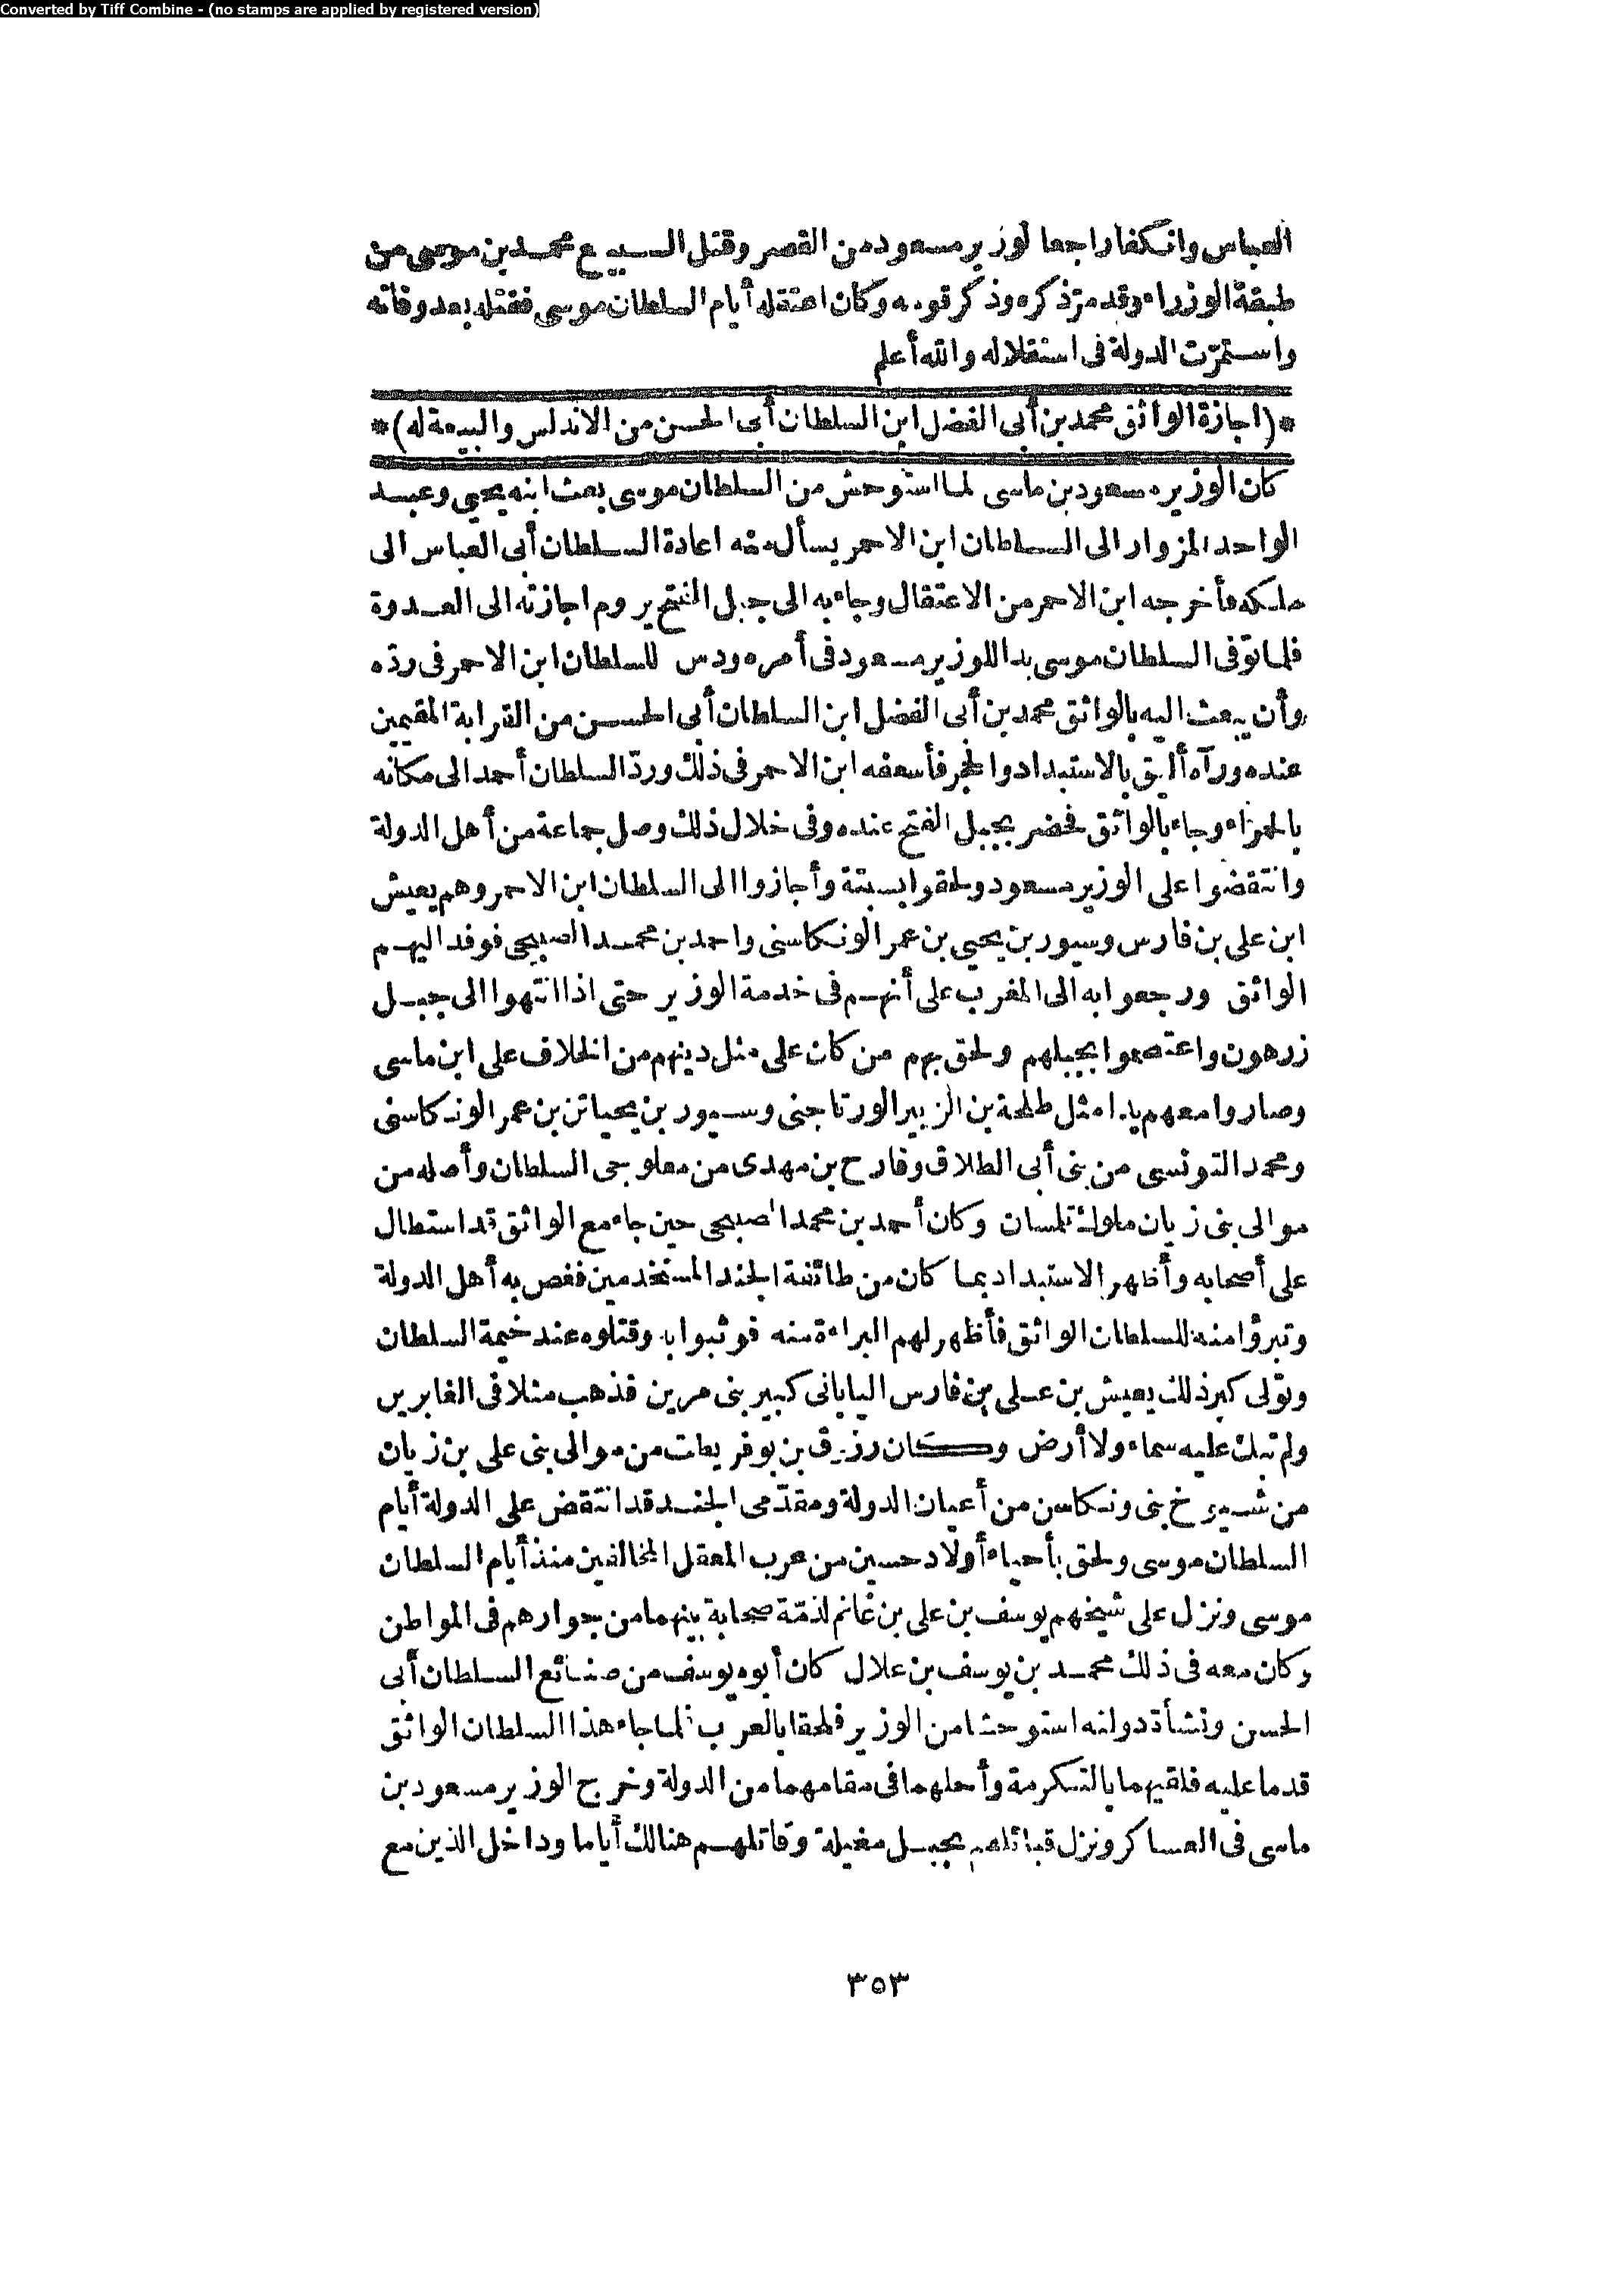 Converted by Tiff Combine - (no stamps are applied by registered version)
العباس وانكفأ راجعا لوزير مسعود من القصر وقتل السبيع محمد بن موسى من
طبقة الوزراء وقد مرّ ذكره وذكر قومه وكان اعتقله أيام السلطان موسى فقتله بعد وفاته
واستمرّت الدولة فى استقلاله والله أعلم
*(اجازة الواثق محمد بن أبى الفضل ابن السلطان أبى الحسن من الاندلس والبيعة له)*
كان الوزير مسعود بن ماسى لما استوحش من السلطان موسى بعث ابنه يحيى وعبد
الواحد المزوار الى السلطان ابن الاحمر يسأل منه اعادة السلطان أبى العباس الى
ملكه فأخرجه ابن الاحمر من الاعتقال وجاء به الى جبل الفتح يروم اجازته الى العدوة
فلما توفى السلطان موسى بدا للوزير مسعود فى أمره ودس للسلطان ابن الاحمر فى ردّه
وأن يبعث اليه بالواثق محمد بن أبى الفضل ابن السلطان أبى الحسن من القرابة المقيمين
عنده ورآه أليق بالاستبداد والحجر فأسعفه ابن الاحمر فى ذلك وردّ السلطان أحمد الى مكانه
بالحمراء وجاء بالواثق فحضر بجبل الفتح عنده وفى خلال ذلك وصل جماعة من أهل الدولة
وانتقضوا على الوزير مسعود ولحقوا بسبتة وأجازوا الى السلطان ابن الاحمر وهم يعيش
ابن على بن فارس وسيور بن يحيى بن عمر الونكاسنى واحمد بن محمد الصبيحى فوفد اليهم
الواثق ورجعوا به الى المغرب على أنهم فى خدمة الوزير حتى اذا انتهوا الى جبل
زرهون واعتصموا بجبلهم ولحق بهم من كان على مثل دينهم من الخلاف على ابن ماسى
وصاروا معهم يدا مثل طلحة بن الزبير الورتاجنى وسيور بن يحياتن بن عمر الونكاسنى
ومحمد التونسى من بنى أبى الطلاق وفارح بن مهدى من معلوجى السلطان وأصله من
موالى بنى زيان ملوك تلمسان وكان أحمد بن محمد الصبيحى حين جاء مع الواثق قد استطال
على أصحابه وأظهر الاستبداد بما كان من طائفة الجند المستخدمين فغص به أهل الدولة
وتبرؤا منه للسلطان الواثق فأظهر لهم البراءة منه فوثبوا به وقتلوه عند خيمة السلطان
وتولى كبر ذلك يعيش بن على بن فارس الياباني كبير بنى مرين فذهب مثلا فى الغابرين
ولم تبك عليه سماء ولا أرض وكان رزوق بن بوفريطت من موالى بنى على بن زيان
من شيوخ بنى ونكاسن من أعيان الدولة ومقدّمى الجند قد انتقض على الدولة أيام
السلطان موسى ولحق بأحياء أولاد حسين من عرب المعقل المخالفين منذ أيام السلطان
موسى ونزل على شيخهم يوسف بن على بن غانم لذمّة صحابة بينهما من جوارهم فى المواطن
وكان معه فى ذلك محمد بن يوسف بن علال كان أبوه يوسف من صنائع السلطان أبى
الحسن ونشأة دولته استوحشا من الوزير فلحقا بالعرب فلما جاء هذا السلطان الواثق
قدما عليه فلقيهما بالتكرمة وأحلهما فى مقامهما من الدولة وخرج الوزير مسعود بن
ماسى فى العساكر ونزل قبالتهم بجبل مغيلة وقاتلهم هنالك أياما وداخل الذين مع
٣٥٣